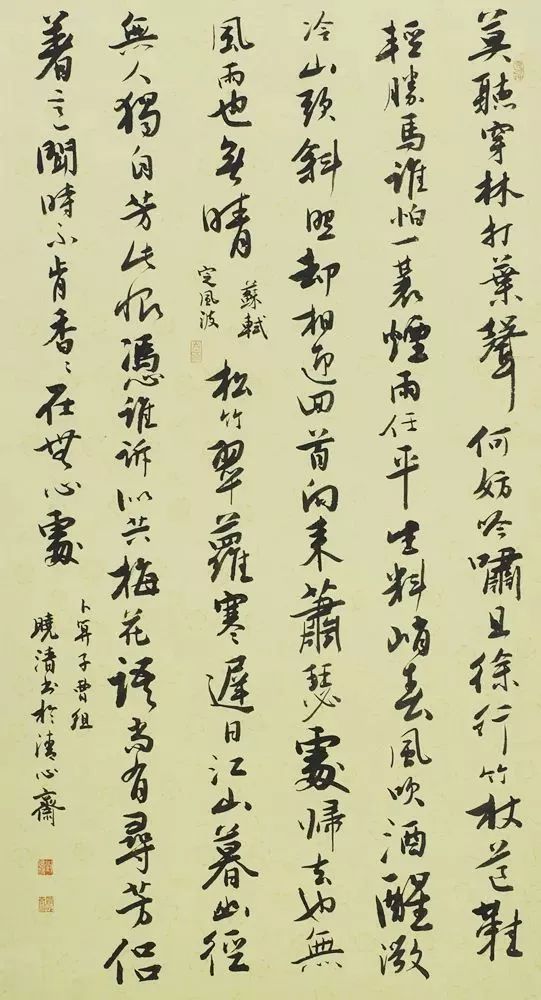 莫聽穿林打葉聲何妨吟嘯且徐行竹杖芒鞋
輕勝馬誰怕一蓑煙雨任平生料峭春風吹酒醒微
冷山頭斜照却相迎回首向來蕭瑟處歸去也無
風雨也無晴
蘇軾
定風波
松竹翠蘿寒遲日江山暮幽徑
無人獨自芳此恨憑誰訴似共梅花語尚有尋芳侶
著意聞時不肯香〻在無心處
卜算子曹組
曉清書於清心齋